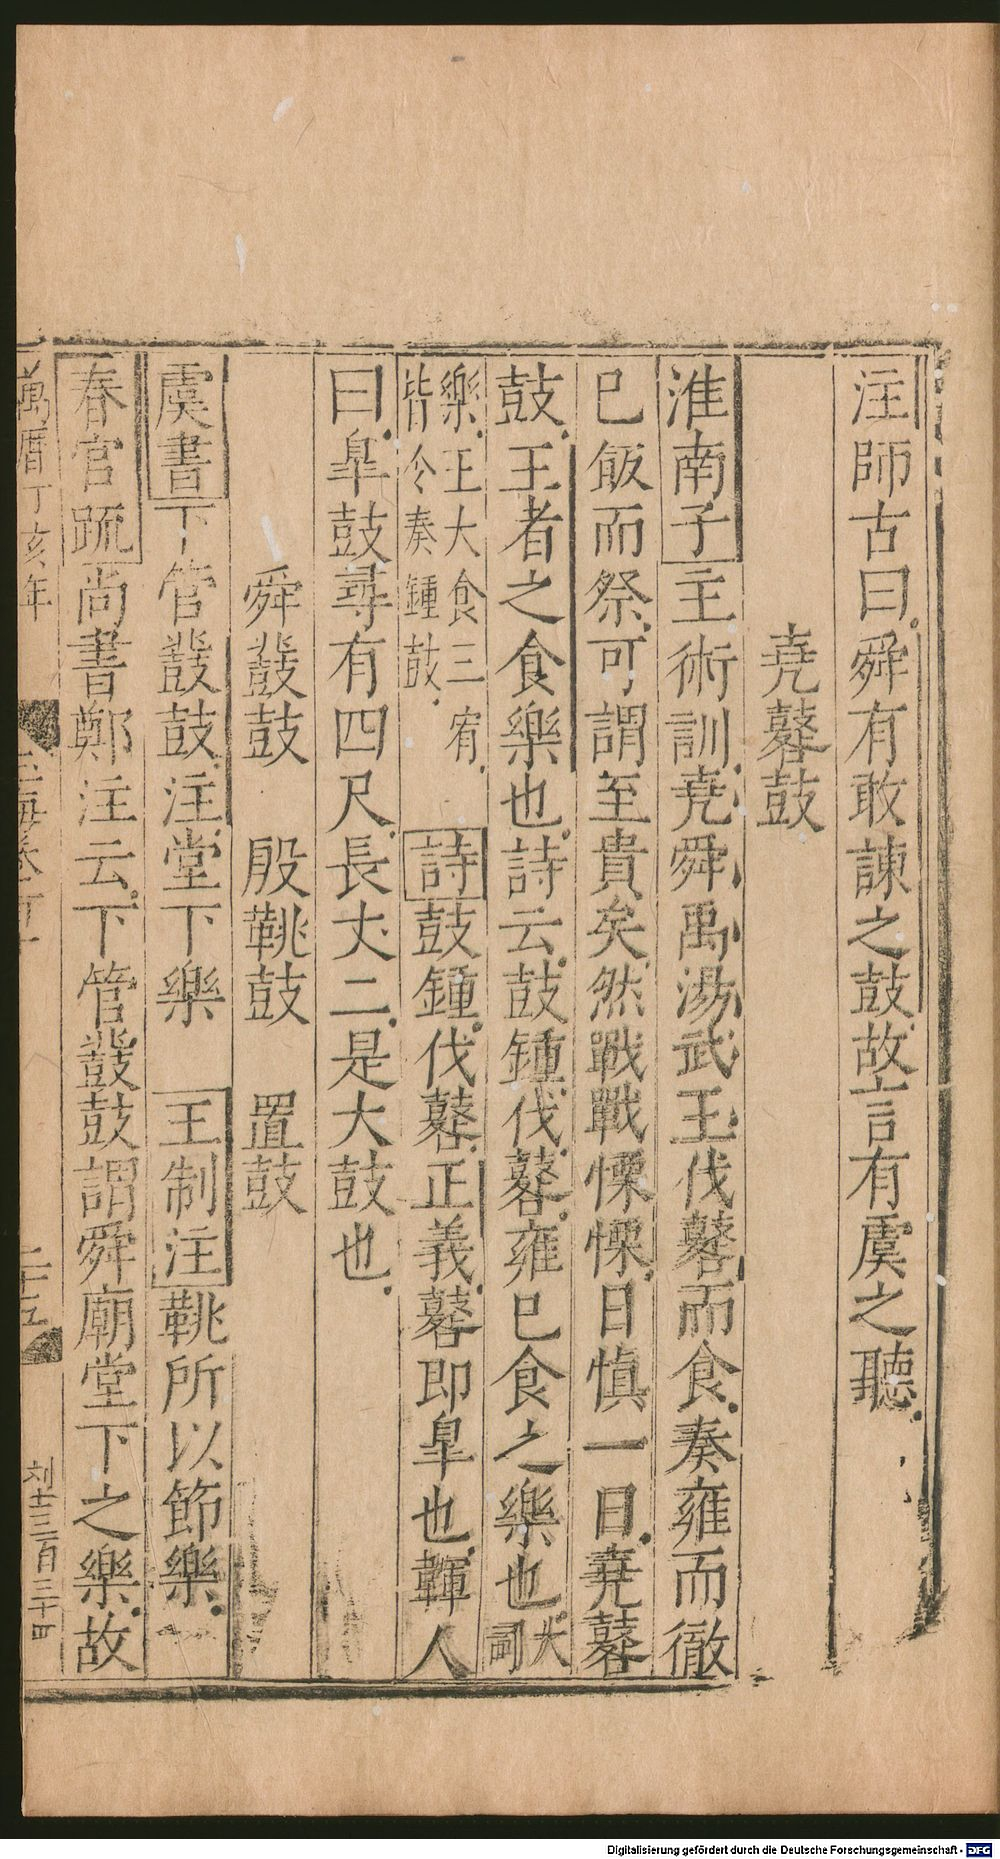 注師古曰舜有敢諫之鼓故言有虞之聽
堯鼛鼓
淮南子主術訓堯舜禹湯武王伐鼛而食奏雍而徹
巳飯而祭可謂至貴矣然戰戰慄慄日慎一日堯鼛
鼓王者之食樂也詩云鼓鍾伐鼛雍巳食之樂也大司
樂王大食三宥皆令奏鍾鼓 詩鼓鍾伐鼛正義鼛即皐也韗人
曰皐鼓尋有四尺長丈二是大鼓也
舜鼗鼓 殷鞉鼓 置鼓
虞書下管鼗鼓注堂下樂 王制注鞉所以節樂
春官疏尚書鄭注云下管鼗鼓謂舜廟堂下之樂故
萬曆丁亥年
玉海卷百十
二十五
刘士三百三十四
Digitalisierung gefördert durch die Deutsche Forschungsgemeinschaft - DFG